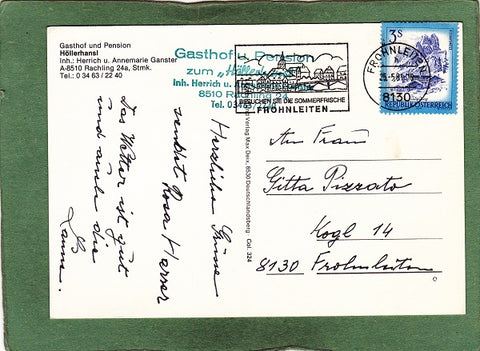 Gasthof und Pension
Höllerhansl
Inh.: Herrich u. Annemarie Ganster
A-8510 Rachling 24a, Stmk.
Tel.: 0 34 63 / 22 40
Gasthof u. Pension
zum
Inh. Herrich u.
8510 Rachling 24
Tel. 03463/
BESUCHEN SIE DIE SOMMERFRISCHE
FROHNLEITEN
FROHNLEITEN
8130
3S
REPUBLIK ÖSTERREICH
Herzliche Grüsse
sendet Rosa Harrer
Das Wetter ist gut
und auch die
Laune.
Verlag Max Deix, 8530 Deutschlandsberg - Col. 324
An Frau
Gitta Pizzato
Kogl 14
8130 Frohnleiten